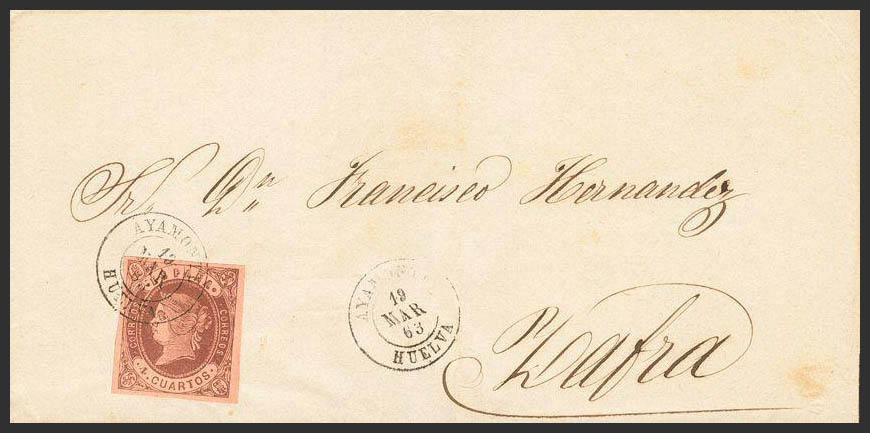 Sr. Dn Francisco Hernandez
AYAMON
19
MAR
HUELVA
CORREOS
CORREOS
4 CUARTOS
AYAMON
19
MAR
63
HUELVA
Zafra